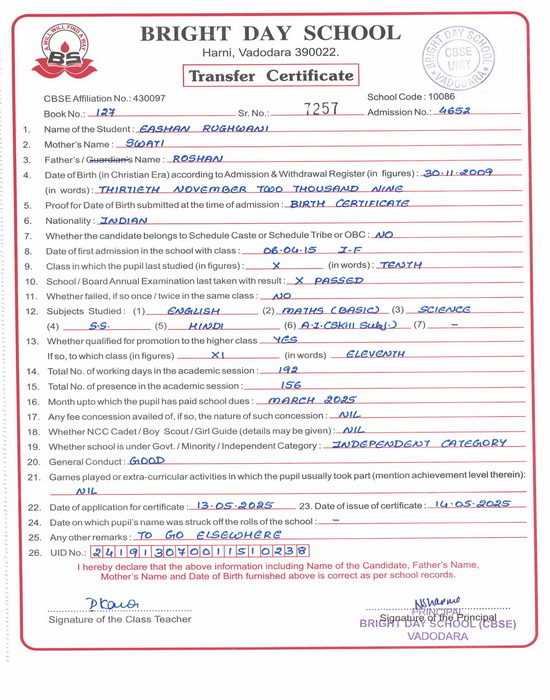 A WILL WILL FIND A WAY
BS
BRIGHT DAY SCHOOL
Harni, Vadodara 390022.
Transfer Certificate
BRIGHT DAY SCHOOL
CBSE
UNIT
*VADODARA*
CBSE Affiliation No.: 430097 School Code : 10086
Book No.: 127 Sr. No.: 7257 Admission No.: 4652
1. Name of the Student : EASHAN RUGHWANI
2. Mother's Name : SWATI
3. Father's / Guardian's Name : ROSHAN
4. Date of Birth (in Christian Era) according to Admission & Withdrawal Register (in figures) : 30.11.2009
(in words) : THIRTIETH NOVEMBER TWO THOUSAND NINE
5. Proof for Date of Birth submitted at the time of admission : BIRTH CERTIFICATE
6. Nationality : INDIAN
7. Whether the candidate belongs to Schedule Caste or Schedule Tribe or OBC : NO
8. Date of first admission in the school with class : 06.04.15 I-F
9. Class in which the pupil last studied (in figures) : X (in words) : TENTH
10. School / Board Annual Examination last taken with result : X PASSED
11. Whether failed, if so once / twice in the same class : NO
12. Subjects Studied : (1) ENGLISH (2) MATHS (BASIC) (3) SCIENCE
(4) S.S. (5) HINDI (6) A.I.(Skill Subj.) (7) –
13. Whether qualified for promotion to the higher class YES
If so, to which class (in figures) XI (in words) ELEVENTH
14. Total No. of working days in the academic session : 192
15. Total No. of presence in the academic session : 156
16. Month upto which the pupil has paid school dues : MARCH 2025
17. Any fee concession availed of, if so, the nature of such concession : NIL
18. Whether NCC Cadet / Boy Scout / Girl Guide (details may be given) : NIL
19. Whether school is under Govt. / Minority / Independent Category : INDEPENDENT CATEGORY
20. General Conduct : GOOD
21. Games played or extra-curricular activities in which the pupil usually took part (mention achievement level therein):
NIL
22. Date of application for certificate : 13.05.2025 23. Date of issue of certificate : 14.05.2025
24. Date on which pupil's name was struck off the rolls of the school : –
25. Any other remarks : TO GO ELSEWHERE
26. UID No.: 241913070011510238
I hereby declare that the above information including Name of the Candidate, Father's Name,
Mother's Name and Date of Birth furnished above is correct as per school records.
Signature of the Class Teacher
Signature of the Principal
PRINCIPAL
BRIGHT DAY SCHOOL (CBSE)
VADODARA